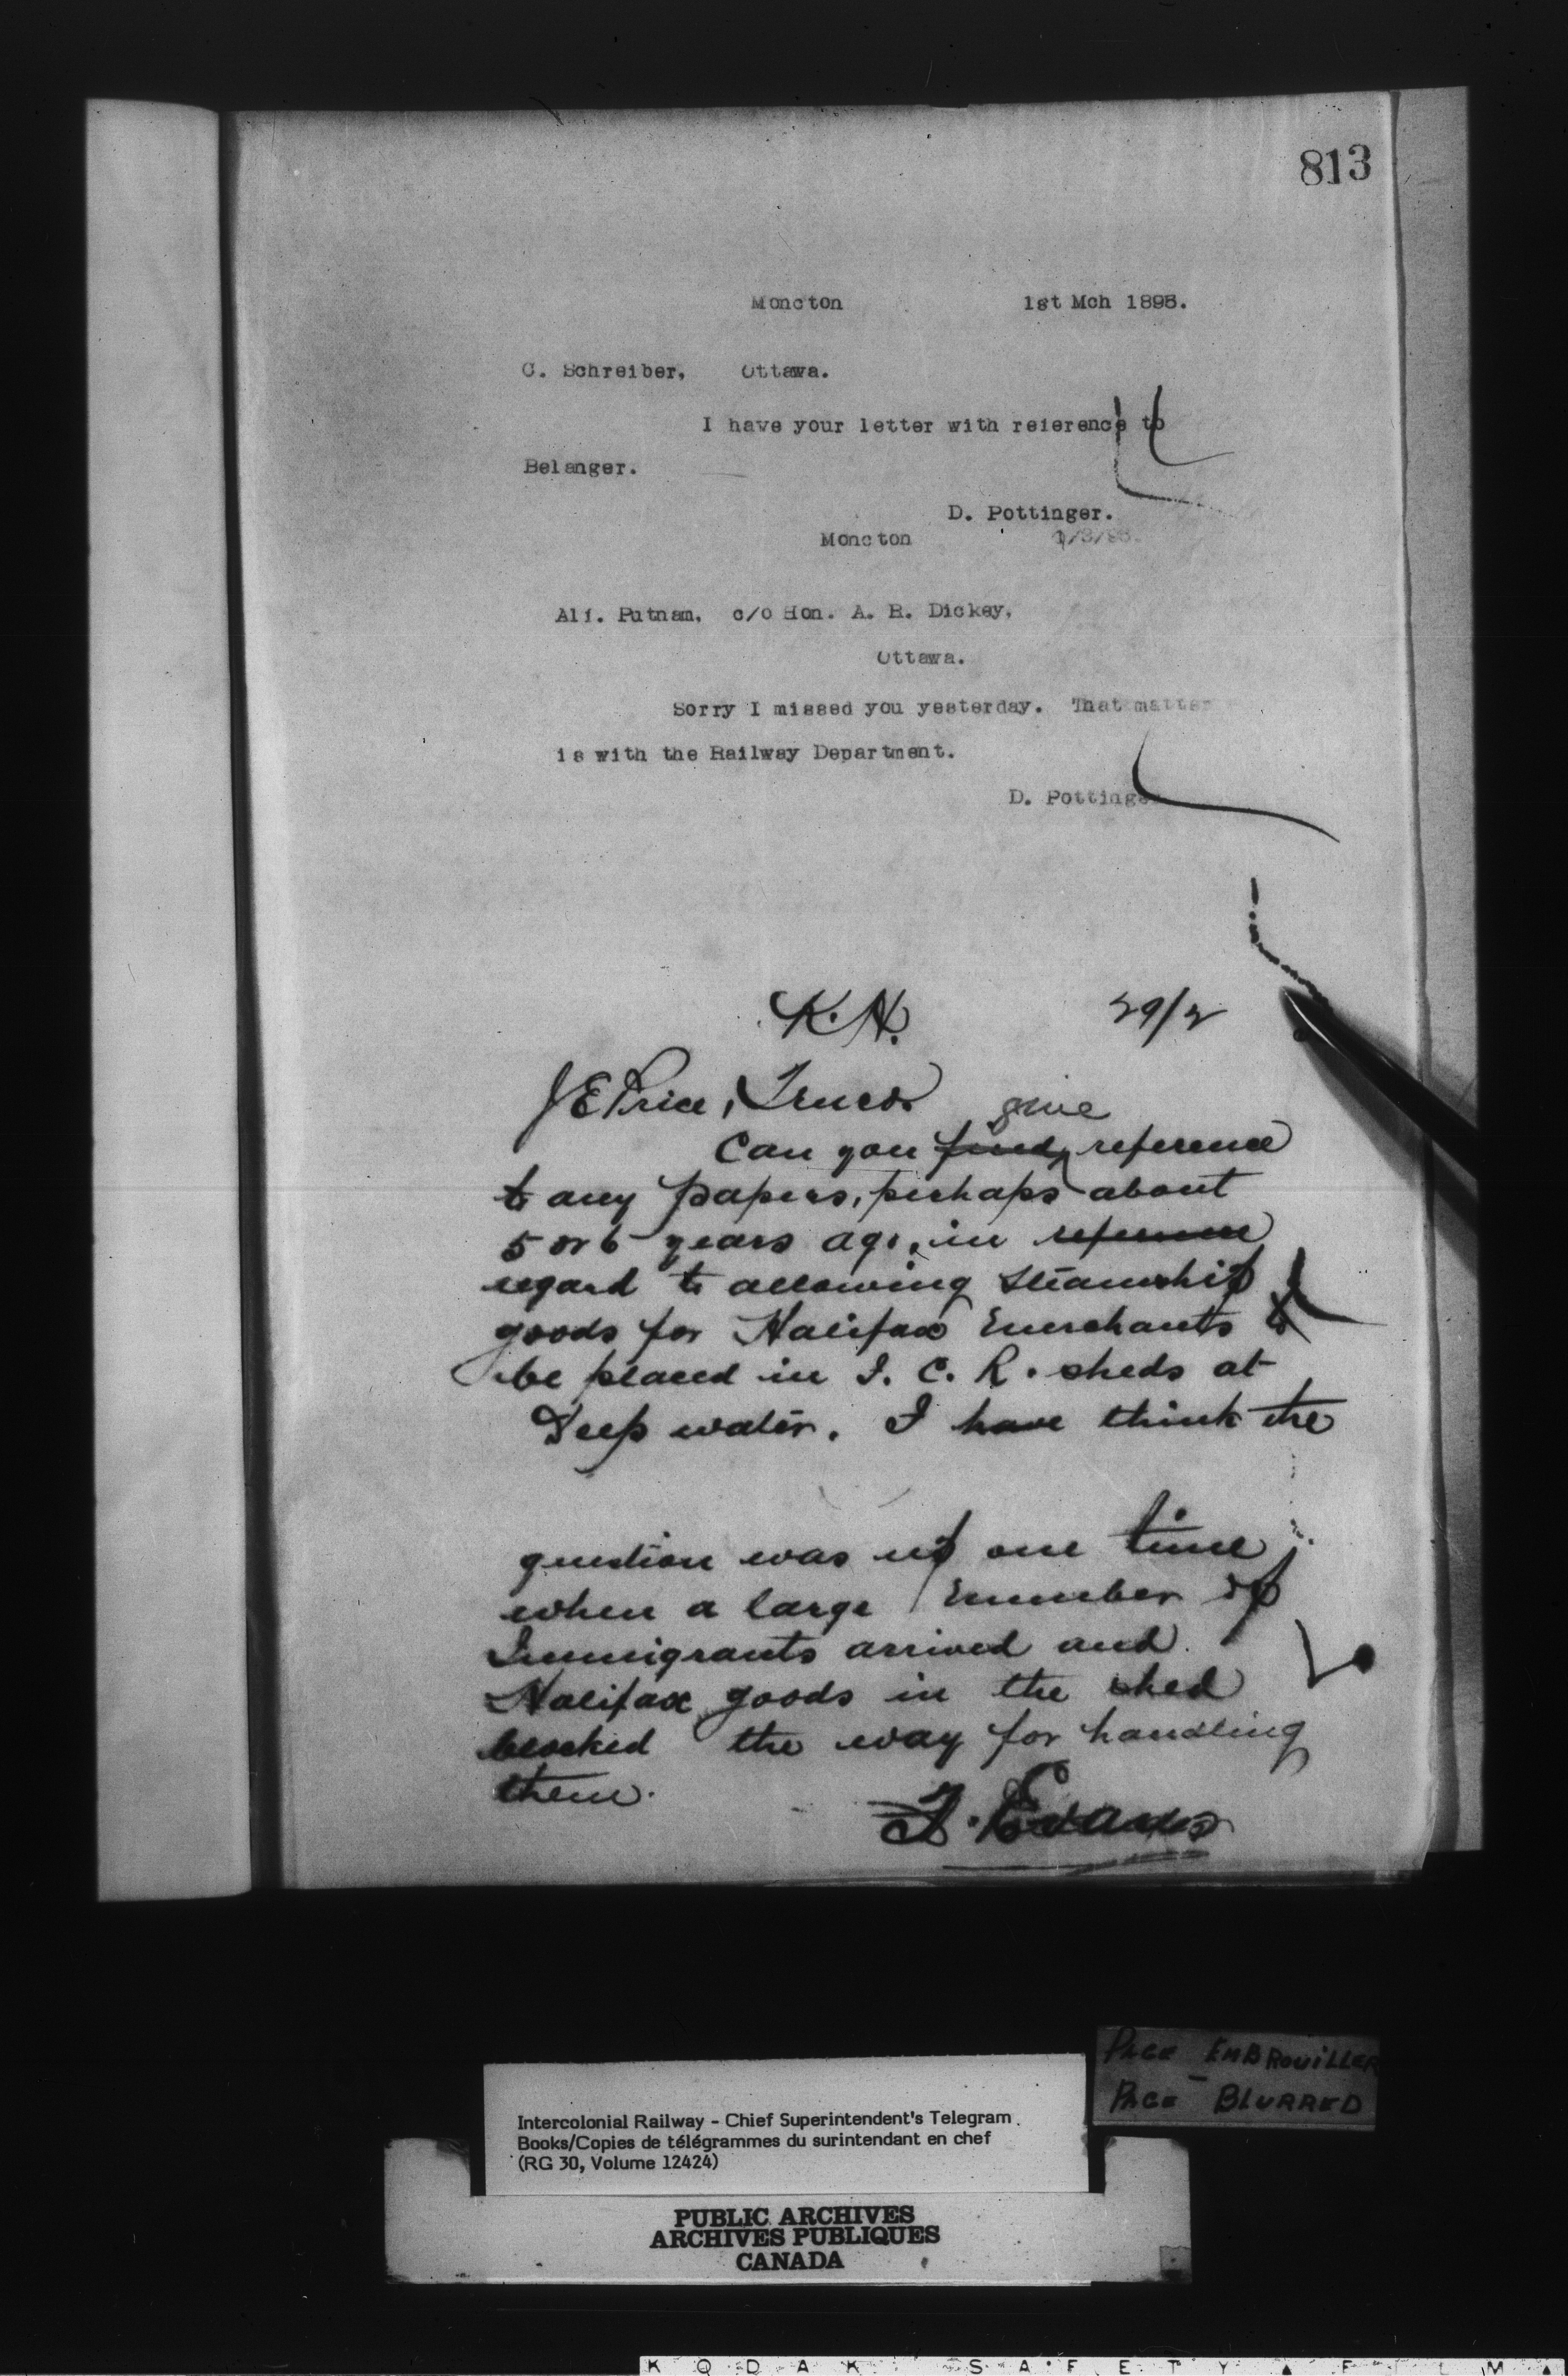 813
Moncton 1st Mch 1895.
C. Schreiber, Ottawa.
I have your letter with reference to
Belanger.
D. Pottinger.
Moncton 1/3/95.
Alf. Putnam, c/o Hon. A. R. Dickey,
Ottawa.
Sorry I missed you yesterday. That matter
is with the Railway Department.
D. Pottinger
K. H.
J E Price, Truro
give
Can you find reference
to any papers, perhaps about
5 or 6 years ago, in reference
regard to allowing Steamship
goods for Halifax merchants to
be placed in I. C. R. sheds at
Deep water. I have think the
question was up one time
when a large number of
Immigrants arrived and
Halifax goods in the shed
blocked the way for handling
them.
Evans
PAGE EMBROUILLER
PAGE BLURRED
Intercolonial Railway - Chief Superintendent's Telegram
Books/Copies de télégrammes du surintendant en chef
(RG 30, Volume 12424)
PUBLIC ARCHIVES
ARCHIVES PUBLIQUES
CANADA
KODAK SAFETY